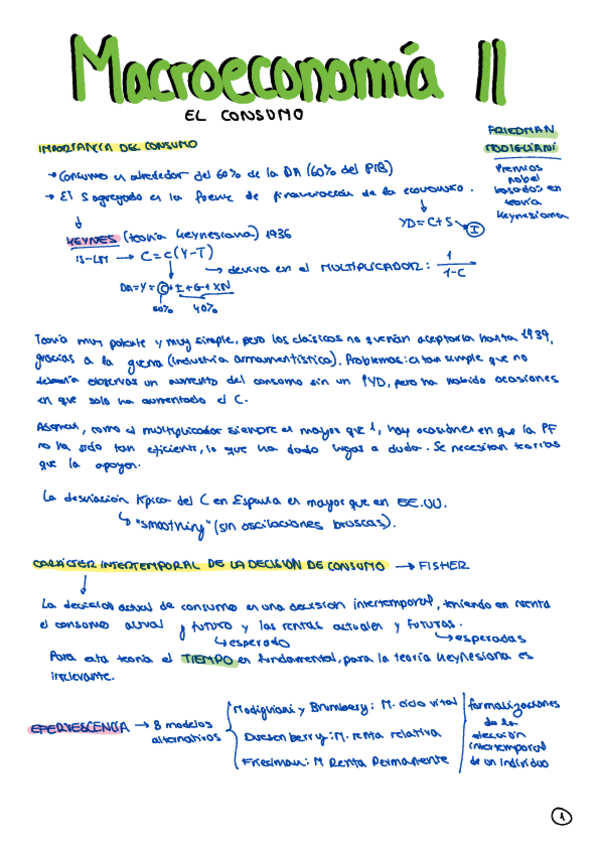 Macroeconomía II
EL CONSUMO
FRIEDMAN
MODIGLIANI
Premios
nobel
basados en
teoría
keynesiana
IMPORTANCIA DEL CONSUMO
→ Consumo es alrededor del 60% de la DA (60% del PIB)
→ El S agregado es la fuente de financiación de la economía.
YD = C+S → I
KEYNES (teoría keynesiana) 1936
IS-LM → C = c(Y-T)
→ deriva en el MULTIPLICADOR: 1/1-C
DA=Y= C+I+G+XN
60% 40%
Teoría muy potente y muy simple, pero los clásicos no querían aceptarla hasta 1939,
gracias a la guerra (industria armamentística). Problemas: es tan simple que no
debería observarse un aumento del consumo sin un ↑YD, pero ha habido ocasiones
en que solo ha aumentado el C.
Además, como el multiplicador siempre es mayor que 1, hay ocasiones en que la PF
no ha sido tan eficiente, lo que ha dado lugar a duda. Se necesitan teorías
que la apoyen.
La desviación típica del C en España es mayor que en EE.UU.
↳ "smoothing" (sin oscilaciones bruscas).
CARÁCTER INTERTEMPORAL DE LA DECISIÓN DE CONSUMO → FISHER
La decisión actual de consumo es una decisión intertemporal, teniendo en cuenta
el consumo actual y futuro y las rentas actuales y futuras.
↳ esperado ↳ esperadas
Para esta teoría el TIEMPO es fundamental, para la teoría keynesiana es
irrelevante.
EFERVESCENCIA → 3 modelos
alternativos
Modigliani y Brumberg: M. ciclo vital
Duesenberry: M. renta relativa
Friedman: M Renta Permanente
formalizaciones
de la
elección
intertemporal
de un individuo
1